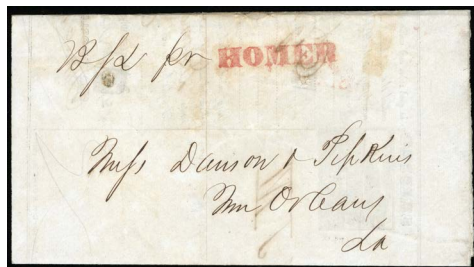 B/L pr HOMER
Messrs Dawson & Tipkins
New Orleans
La